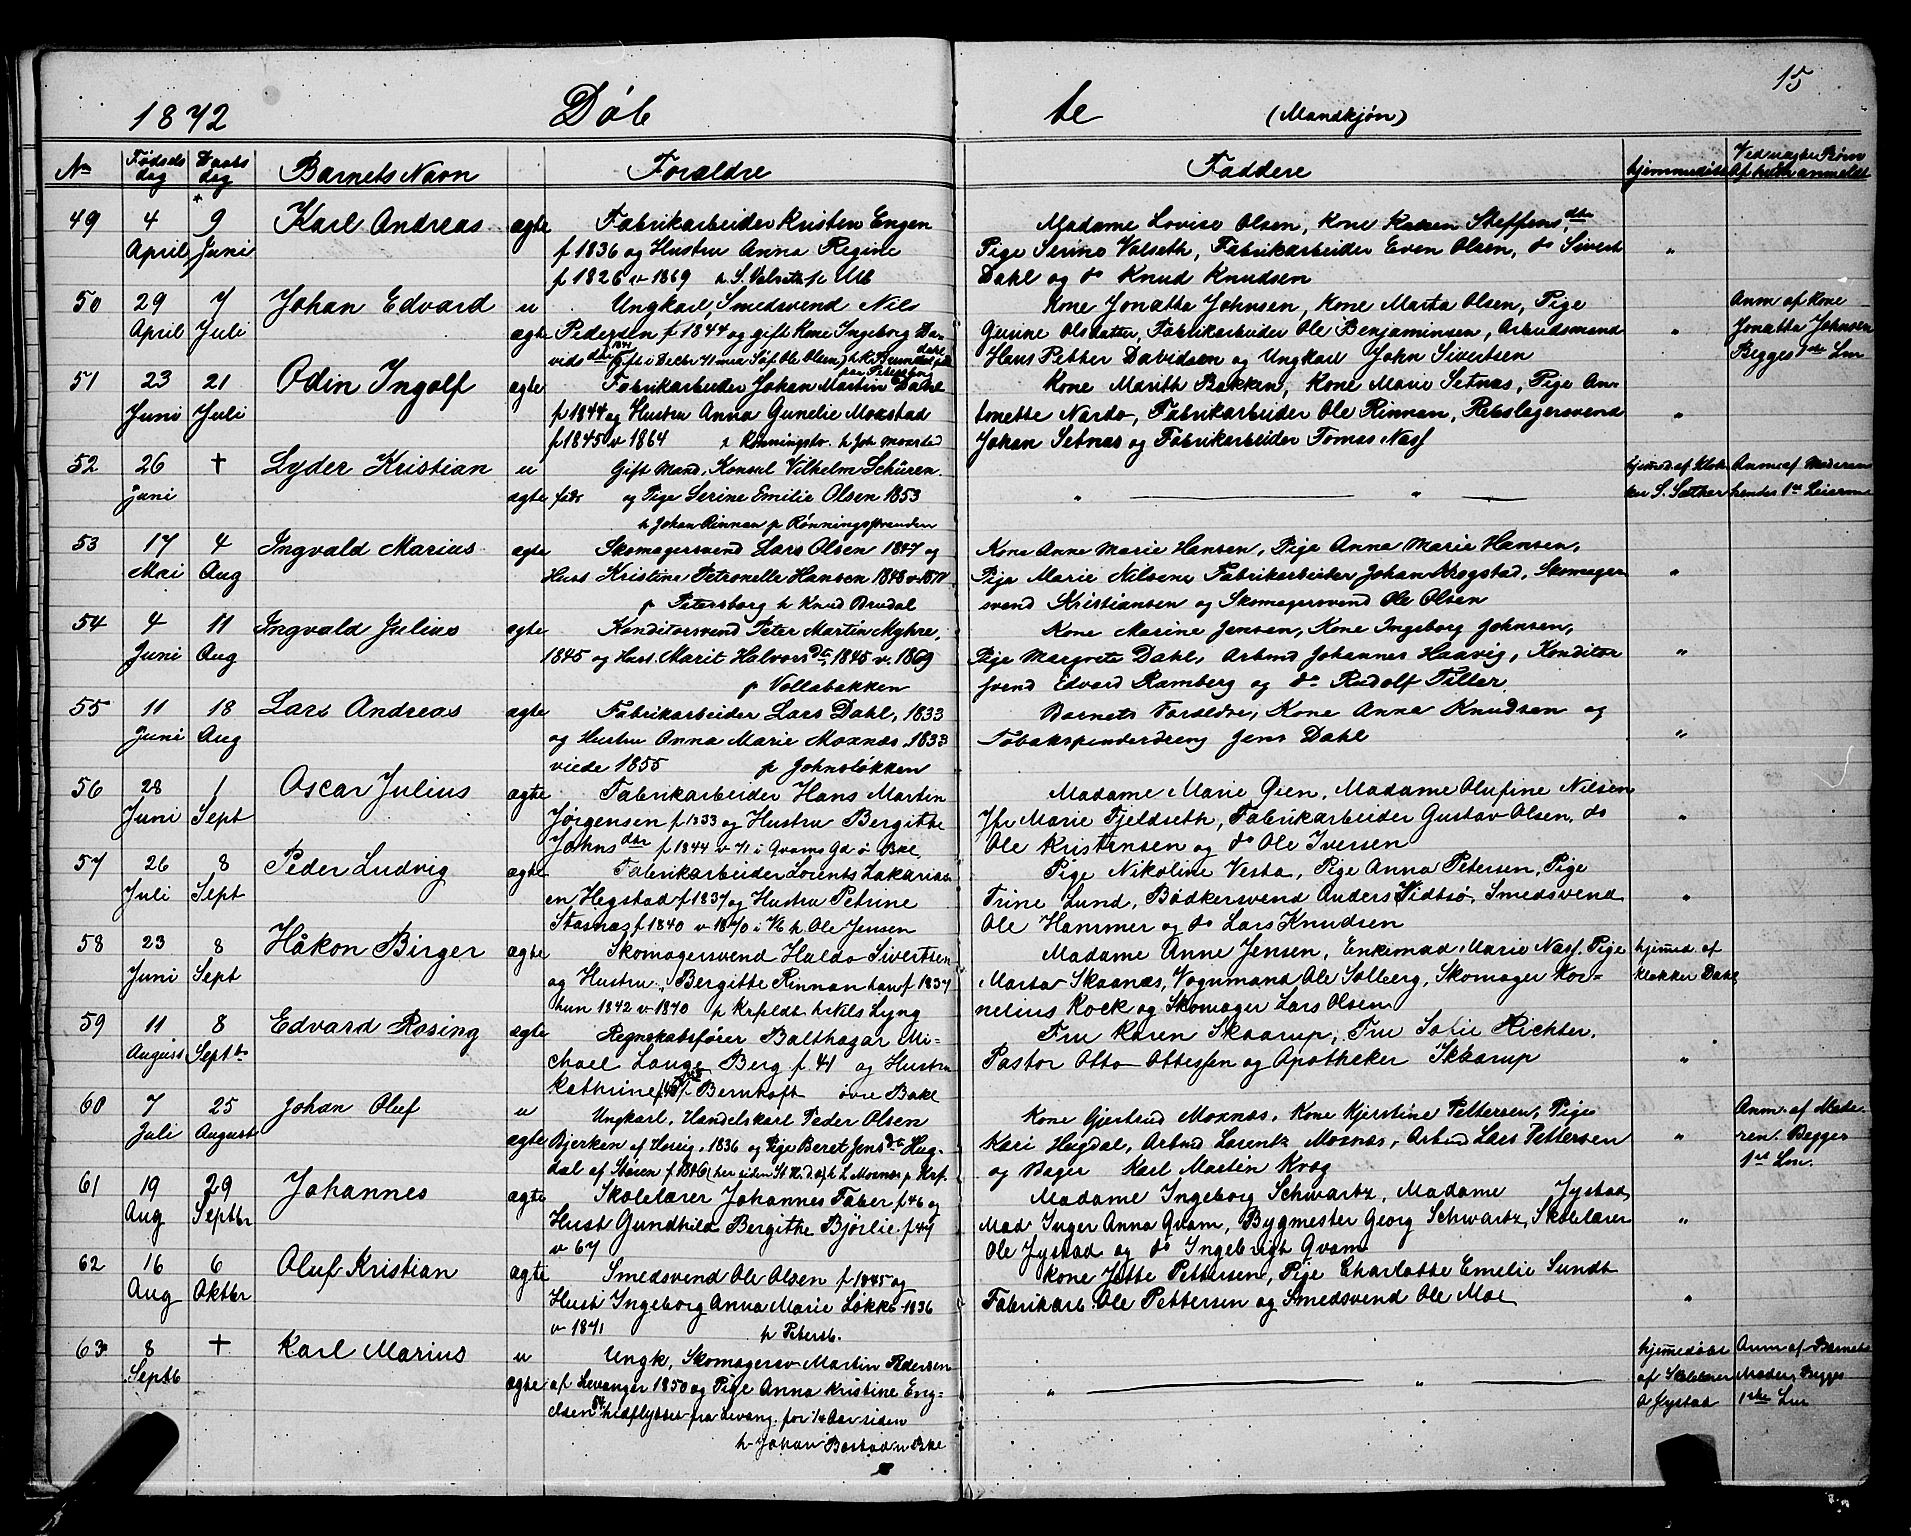 15
1872 Døb te (Mandkjøn)
No Fødselsdag Daabsdag Barnets Navn Forældre Faddere hjemmedøbt Ved uægte Børn af hvem anmeldt
49 4 April 9 Juni Karl Andreas ægte
Fabrikarbeider Kristen Engen
f 1836 og Hustru Anna Regine
f 1826 v 1869
Madame Lovise Olsen, Kone Karen Steffensdtr
Pige Serine Valseth, Fabrikarbeider Even Olsen, do Sivert
Dahl og do Knud Knudsen
"
50 29 April 7 Juli Johan Edvard uægte
Ungkarl, Smedsvend Nils
Pedersen f 1844 og gift Kone Ingeborg Da-
vidsdtr
Kone Jonatta Johnsen, Kone Marta Olsen, Pige
Gurine Olsdatter, Fabrikarbeider Ole Benjaminsen, Arbeidsmand
Hans Petter Davidsen og Ungkarl John Sivertsen
"
Anm af Kone
Jonatta Johnsen
Begges 1ste Lm
51 23 Juni 21 Juli Odin Ingolf ægte
Fabrikarbeider Johan Martin Dahl
f 1844 og Hustru Anna Gunelie Moxstad
f 1845 v 1864
Kone Marith Bakken, Kone Marie Setnæs, Pige An-
tonette Nardo, Fabrikarbeider Ole Rinnan, Rebslagersvend
Johan Setnæs og Fabrikarbeider Tomas Næss
"
52 26 Juni † Lyder Kristian uægte
Gift Mand, Konsul Vilhelm Schüren
født og Pige Serine Emilie Olsen 1853
h Johan Rinnan p Rønningsstranden
" — " —
hjemd af Klok-
ker S. Sæther
Anm af Moderen
hendes 1ste Leierm
53 17 Mai 4 Aug Ingvald Marius ægte
Skomagersvend Lars Olsen 1847 og
Hust Kristine Petronelle Hansen 1848 v 1871
p Petersborg h Knud Brudal
Kone Anne Marie Hansen, Pige Anna Marie Hansen,
Pige Marie Nilsene Fabrikarbeider Johan Krogstad, Skomager-
svend Kristiansen og Skomagersvend Ole Olsen
"
54 4 Juni 11 Aug Ingvald Julius ægte
Konditorsvend Peter Martin Myhre,
1845 og Hust. Marit Halvorsdtr 1845 v. 1869
p Vollabakken
Kone Marine Jensen, Kone Ingeborg Johnsen,
Pige Margrete Dahl, Arbmd Johannes Haavig, Konditor
svend Edvard Ramberg og do Rudolf Tiller
"
55 11 Juni 18 Aug Lars Andreas ægte
Fabrikarbeider Lars Dahl, 1833
og Hustru Anna Marie Moxnæs, 1833
viede 1855 p Johnsløkken
Barnets Forældre, Kone Anna Knudsen og
Tobakspinderdreng Jens Dahl
"
56 28 Juni 1 Sept Oscar Julius ægte
Fabrikarbeider Hans Martin
Jørgensen f 1833 og Hustru Bergitte
Johnsdtr f 1844 v 71 i Qvams Gd ø Bkl
Madame Marie Øien, Madame Olufine Nilsen
Jfr Marie Fjeldseth, Fabrikarbeider Gustav Olsen, do
Ole Kristensen og do Ole Iversen
"
57 26 Juli 8 Sept Peder Ludvig ægte
Fabrikarbeider Lorents Zakarias-
en Hegstad f 1837 og Hustru Petrine
Stasnæs f 1840 v 1870 h Ole Jensen
Pige Nikoline Vesta, Pige Anna Petersen, Pige
Trine Lund, Bødkersvend Anders Vidtsø, Smedsvend
Ole Hammer og do Lars Knudsen
"
58 23 Juni 8 Sept Håkon Birger ægte
Skomagersvend Haldo Sivertsen
og Hustru Bergitte Rinnan han f 1837
hun 1842 v 1870 h Nils Lyng
Madame Anne Jensen, Enkemad. Marie Næss. Pige
Marta Skaanæs, Vognmand Ole Solberg, Skomager Kor-
nelius Kock og Skomager Lars Olsen
hjemd. af
klokker Dahl
59 11 August 8 Septbr Edvard Rosing ægte
Regnskabsfører Balthazar Mi-
chael Lange Berg f. 41 og Hustru
Kathrine Bernhoft øvre Bakl
Fru Karen Skaarup, Fru Sofie Richter,
Pastor Otto Ottessen og Apotheker Skaarup
"
60 7 Juli 25 August Johan Oluf uægte
Ungkarl, Handelskarl Peder Olsen
Bjerken af Horig, 1836 og Pige Beret Jensdtr Hug-
dal af Støren f 1846
Kone Gjertrud Moxnæs, Kone Kjerstine Pettersen, Pige
Kari Hugdal, Arbmd Lorentz Moxnæs, Arbmd Lars Pettersen
og Bager Karl Martin Krog
"
Anm. af Mode-
ren. Begges
1ste Lm.
61 19 Aug 29 Septbr Johannes ægte
Skolelærer Johannes Faber f 46 og
Hust Gundhild Bergithe Bjørlie f 47
v 67
Madame Ingeborg Schwartz, Madame Jystad,
Mad Inger Anna Qvam, Bygmester Georg Schwartz, Skolelærer
Ole Jystad og do Ingebrigt Qvam
"
62 16 Aug 6 Oktbr Oluf Kristian ægte
Smedsvend Ole Olsen f 1845 og
Hust Ingeborg Anna Marie Løkke 1836
v 1871 p Petersb.
Kone Jette Pettersen, Pige Charlotte Emelie Sundt
Fabrikarb. Ole Pettersen og Smedsvend Ole Moe
"
63 8 Septb † Karl Marius uægte
Ungk, Skomagersv Martin Pedersen
af Levanger 1850 og Pige Anna Kristine Eng-
elsen hidflyttet fra Levang. for 1/4 Aar siden
" — " —
hjemmedøbt
af Skolelærer
O Jystad
Anm af Barnets
Moder, Begges
1ste Lm